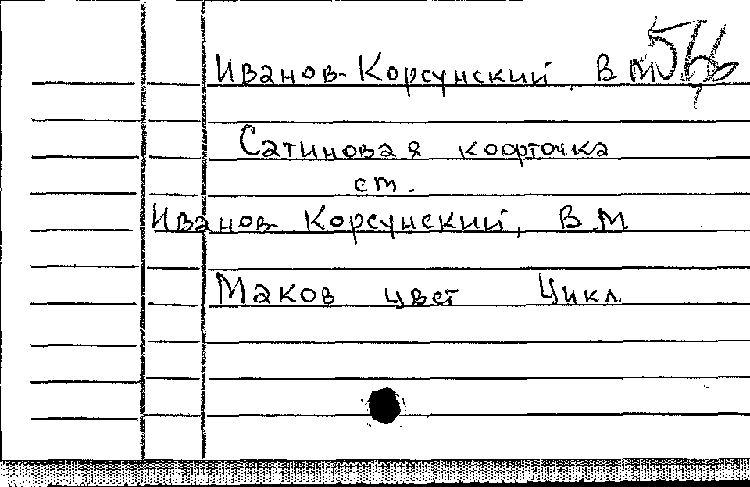 566
Иванов-Корсунский, В М
Сатиновая кофточка
ст.
Иванов-Корсунский, В М
Маков цвет Цикл